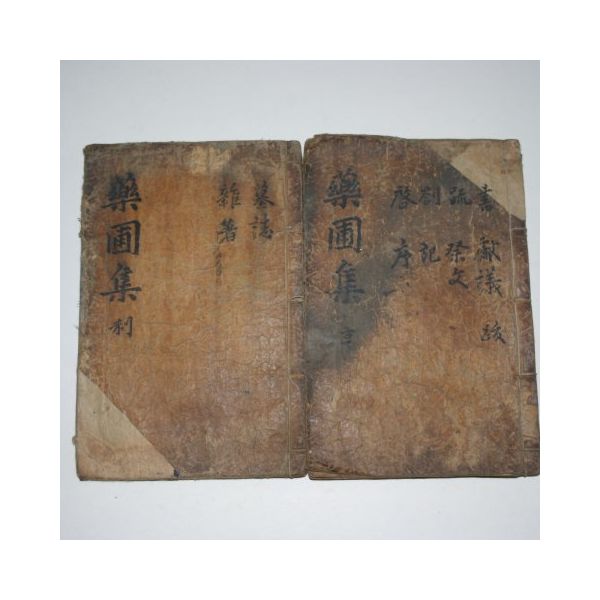 書 獻議 跋
疏 祭文
劄 記
啓 序
藥圃集 亨
墓誌
雜著
藥圃集 利